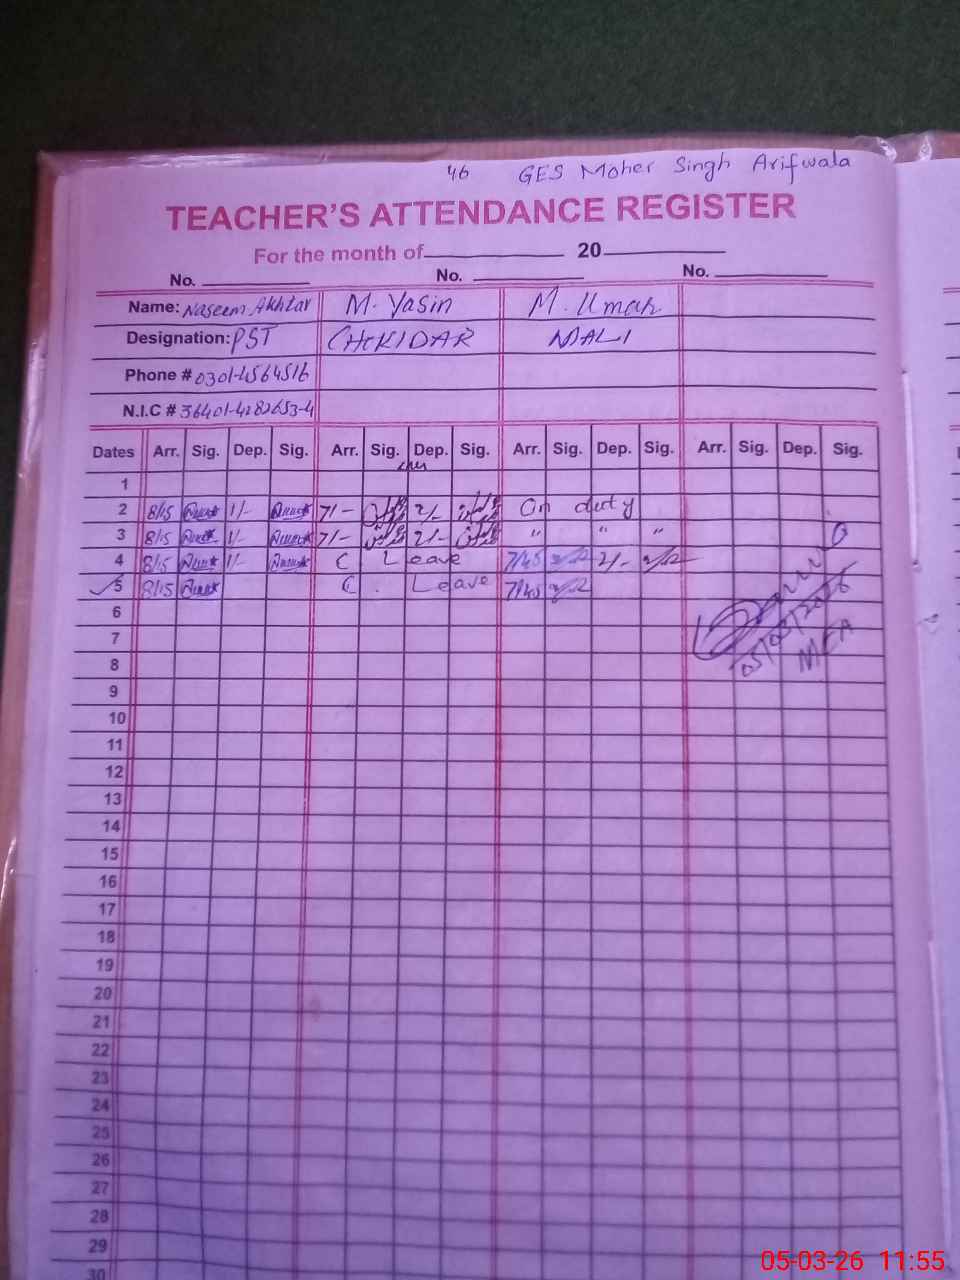 46 GES Moher Singh Arifwala
TEACHER'S ATTENDANCE REGISTER
For the month of 20
No. No. No.
Name: Naseem Akhtar M. Yasin M. Umar
Designation: PST CHOKIDAR MALI
Phone # 0301-4564516
N.I.C # 36401-4282653-4
Dates Arr. Sig. Dep. Sig. Arr. Sig. Dep. Sig. Arr. Sig. Dep. Sig. Arr. Sig. Dep. Sig.
1
2 8/15 1/- 7/- 2/- On duty
3 8/15 1/- 7/- 2/- " " "
4 8/15 1/- C Leave 7/45 2/-
5 8/15 C. Leave 7/45
6
7
05/03/2026
8
MEA
9
10
11
12
13
14
15
16
17
18
19
20
21
22
23
24
25
26
27
28
29
30
05-03-26 11:55